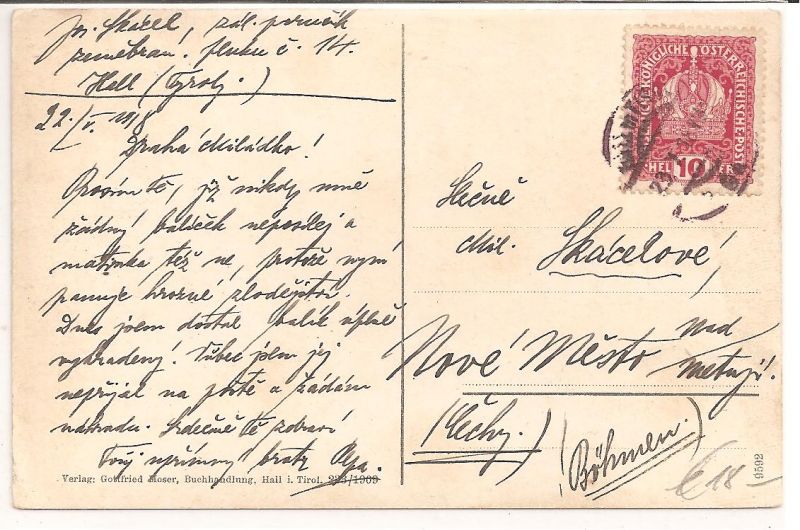 Jos. Skácel, zál. poručík
zeměbran. pluku č. 14.
Hall (Tyroly.)
22./V. 1918
Drahá Miládko!
Prosím tě, již nikdy mně
žádný balíček neposílej a
maminka též ne, protože nyní
panuje hrozné zlodějství.
Dnes jsem dostal balík úplně
vykradený! Vůbec jsem jej
nepřijal na poště a žádám
náhradu. Srdečně tě zdraví
Tvůj upřímný bratr
Verlag: Gottfried Moser, Buchhandlung, Hall i. Tirol. 223/1909
KÖNIGLICHE ÖSTERREICHISCHE POST
10
Slečně
Mil. Skácelové,
Nové Město nad
Metují.
(Čechy.)
(Böhmen)
€ 18-
9592